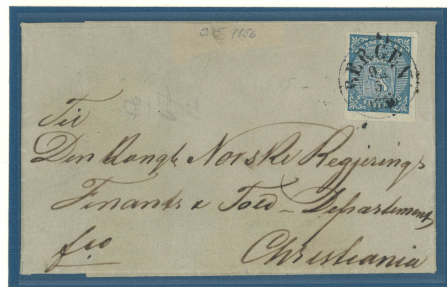 2.5.1856
BERGEN
Til
Den Kongl. Norske Regjerings
Finants & Told-Departement,
fro
Christiania